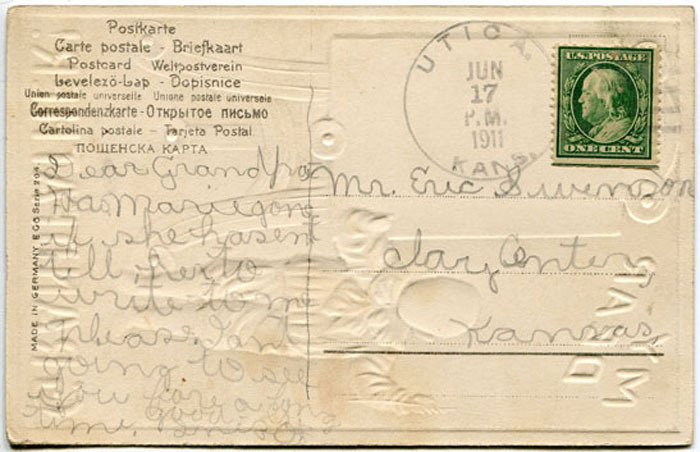 Postkarte
Carte postale - Briefkaart
Postcard Weltpostverein
Levelező-Lap - Dopisnice
Union postale universelle Unione postale universale
Correspondenzkarte - Открытое письмо
Cartolina postale - Tarjeta Postal
ПОШЕНСКА КАРТА
UTICA.
JUN
17
P.M.
1911
KANS.
U.S. POSTAGE
ONE CENT
MADE IN GERMANY EGO Serie
Dear Grand Pa
Has Marie gone
if she hasen
tell her to
write to me
please. I ant
going to see
you for a long
good
time,
Mr. Eric Swenson
Clay Center,
Kansas,